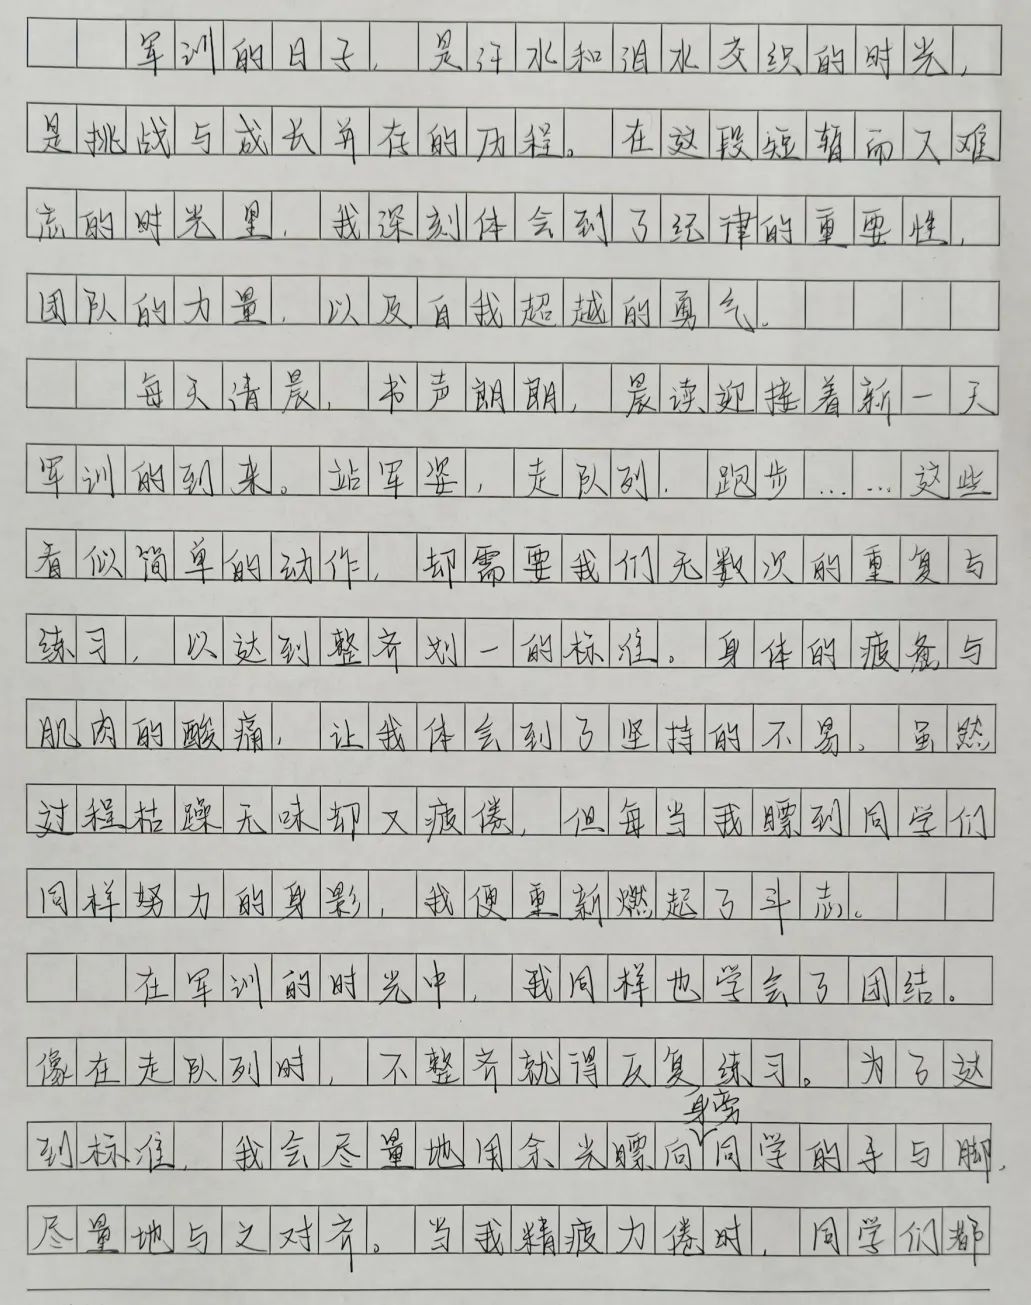 军训的日子，是汗水和泪水交织的时光，
是挑战与成长并存的历程。在这段短暂而又难
忘的时光里，我深刻体会到了纪律的重要性，
团队的力量，以及自我超越的勇气。
每天清晨，书声朗朗，晨读迎接着新一天
军训的到来。站军姿，走队列，跑步……这些
看似简单的动作，却需要我们无数次的重复与
练习，以达到整齐划一的标准。身体的疲惫与
肌肉的酸痛，让我体会到了坚持的不易。虽然
过程枯躁无味却又疲倦，但每当我瞟到同学们
同样努力的身影，我便重新燃起了斗志。
在军训的时光中，我同样也学会了团结。
像在走队列时，不整齐就得反复练习。为了达
身旁
到标准，我会尽量地用余光瞟向同学的手与脚，
尽量地与之对齐。当我精疲力倦时，同学们都